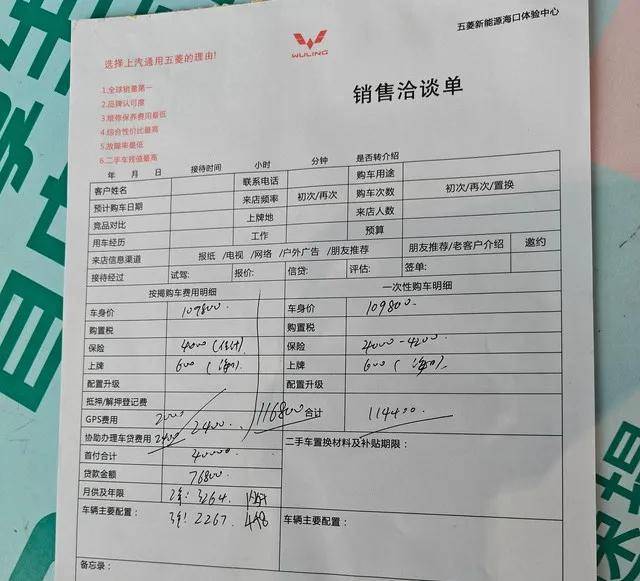 五菱新能源海口体验中心
选择上汽通用五菱的理由!
WULING
1.全球销量第一
2.品牌认可度
3.维修保养费用最低
4.综合性价比最高
5.故障率最低
6.二手车残值最高
销售洽谈单
年 月 日 接待时间 小时 分钟 是否转介绍
客户姓名 联系电话 购车用途
预计购车日期 来店频率 初次/再次 购车次数 初次/再次/置换
竞品对比 上牌地 来店人数
用车经历 工作 预算
来店信息渠道 报纸 /电视 /网络 /户外广告 /朋友推荐 朋友推荐/老客户介绍 邀约
接待经过 试驾: 报价: 信贷: 评估: 签单:
按揭购车费用明细 一次性购车明细
车身价 109800. 车身价 109800.
购置税 购置税
保险 4000 (估计) 保险 4000-4200
上牌 600 (海口) 上牌 600 (海口)
配置升级 配置升级
抵押/解押登记费
GPS费用 2400. 116800 合计 114400.
协助办理车贷费用 2400 二手车置换材料及补贴期限:
首付合计 40000
贷款金额 76800.
月供及年限 3264.
2267.
车辆主要配置: 车辆主要配置:
备忘录: